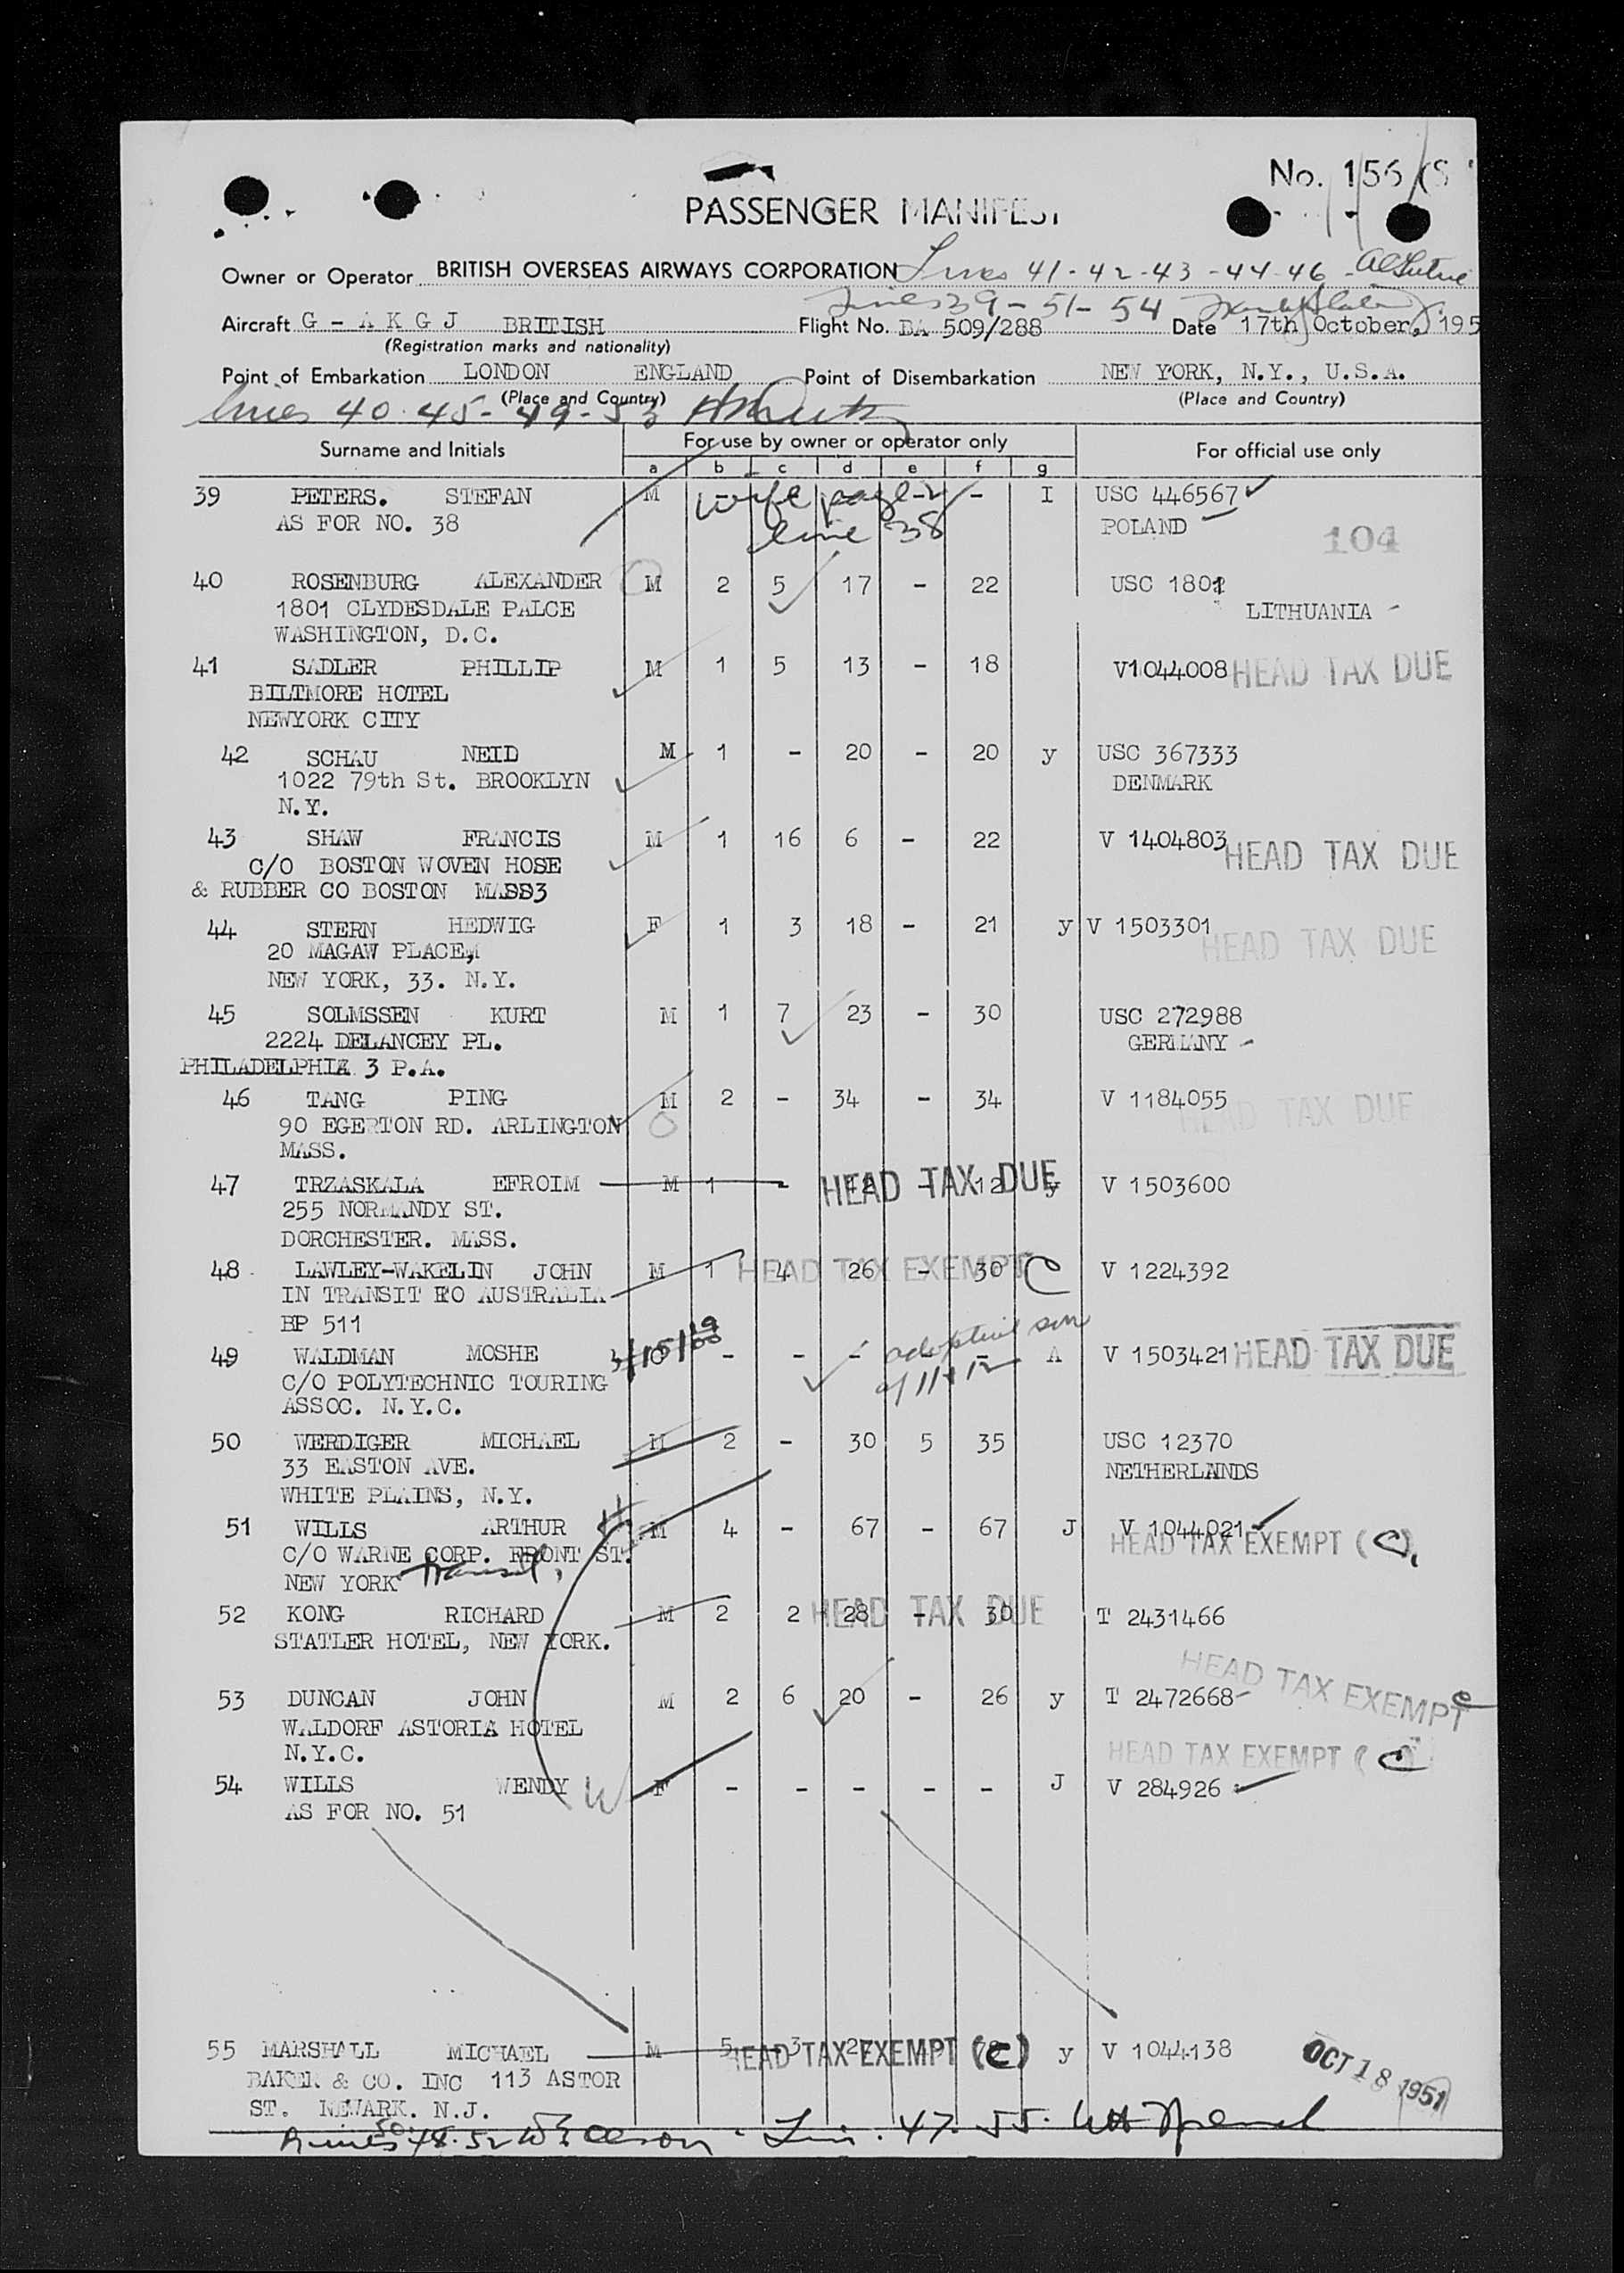 No. 156
PASSENGER MANIFEST
Owner or Operator BRITISH OVERSEAS AIRWAYS CORPORATION Lines 41-42-43-44-46
Lines 39-51-54
Aircraft G - A K G J BRITISH Flight No. BA 509/288 Date 17th October, 195
(Registration marks and nationality)
Point of Embarkation LONDON ENGLAND Point of Disembarkation NEW YORK, N.Y., U.S.A.
(Place and Country) (Place and Country)
Lines 40-45-49-53
Surname and Initials For use by owner or operator only For official use only
a b c d e f g
39 PETERS. STEFAN M wife page 2 - I USC 446567
AS FOR NO. 38 line 38 POLAND
104
40 ROSENBURG ALEXANDER M 2 5 17 - 22 USC 1801
1801 CLYDESDALE PALCE LITHUANIA -
WASHINGTON, D.C.
41 SADLER PHILLIP M 1 5 13 - 18 V1044008 HEAD TAX DUE
BILTMORE HOTEL
NEWYORK CITY
42 SCHAU NEID M 1 - 20 - 20 y USC 367333
1022 79th St. BROOKLYN DENMARK
N.Y.
43 SHAW FRANCIS M 1 16 6 - 22 V 1404803 HEAD TAX DUE
C/O BOSTON WOVEN HOSE
& RUBBER CO BOSTON MASS3
44 STERN HEDWIG F 1 3 18 - 21 y V 1503301 HEAD TAX DUE
20 MAGAW PLACE,
NEW YORK, 33. N.Y.
45 SOLMSSEN KURT M 1 7 23 - 30 USC 272988
2224 DELANCEY PL. GERMANY -
PHILADELPHIA 3 P.A.
46 TANG PING M 2 - 34 - 34 V 1184055 HEAD TAX DUE
90 EGERTON RD. ARLINGTON
MASS.
47 TRZASKALA EFROIM M 1 - 12 - 12 y V 1503600
HEAD TAX DUE
255 NORMANDY ST.
DORCHESTER. MASS.
48 LAWLEY-WAKELIN JOHN M 1 4 26 - 30 V 1224392
HEAD TAX EXEMPT C
IN TRANSIT TO AUSTRALIA
BP 511
49 WALDMAN MOSHE - - - - - A V 1503421 HEAD TAX DUE
adoptive son
C/O POLYTECHNIC TOURING
ASSOC. N.Y.C.
50 WERDIGER MICHAEL M 2 - 30 5 35 USC 12370
33 EASTON AVE. NETHERLANDS
WHITE PLAINS, N.Y.
51 WILLS ARTHUR H M 4 - 67 - 67 J V 1044021
C/O WARNE CORP. FRONT ST. HEAD TAX EXEMPT (C)
NEW YORK Transit,
52 KONG RICHARD M 2 2 28 - 30 T 2431466
HEAD TAX DUE
STATLER HOTEL, NEW YORK.
53 DUNCAN JOHN M 2 6 20 - 26 y T 2472668 HEAD TAX EXEMPT
WALDORF ASTORIA HOTEL
N.Y.C. HEAD TAX EXEMPT (C)
54 WILLS WENDY W F - - - - - J V 284926
AS FOR NO. 51
55 MARSHALL MICHAEL M 5 3 y V 1044138
HEAD TAX EXEMPT (C)
BAKER & CO. INC 113 ASTOR OCT 18 1951
ST. NEWARK. N.J.
Lines 48-52 Lin. 47-55.